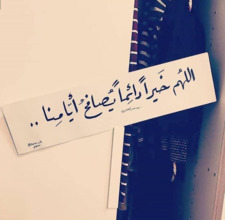 اللهُم خَيراً دائِماً يُصافحُ أيّامِنا ..